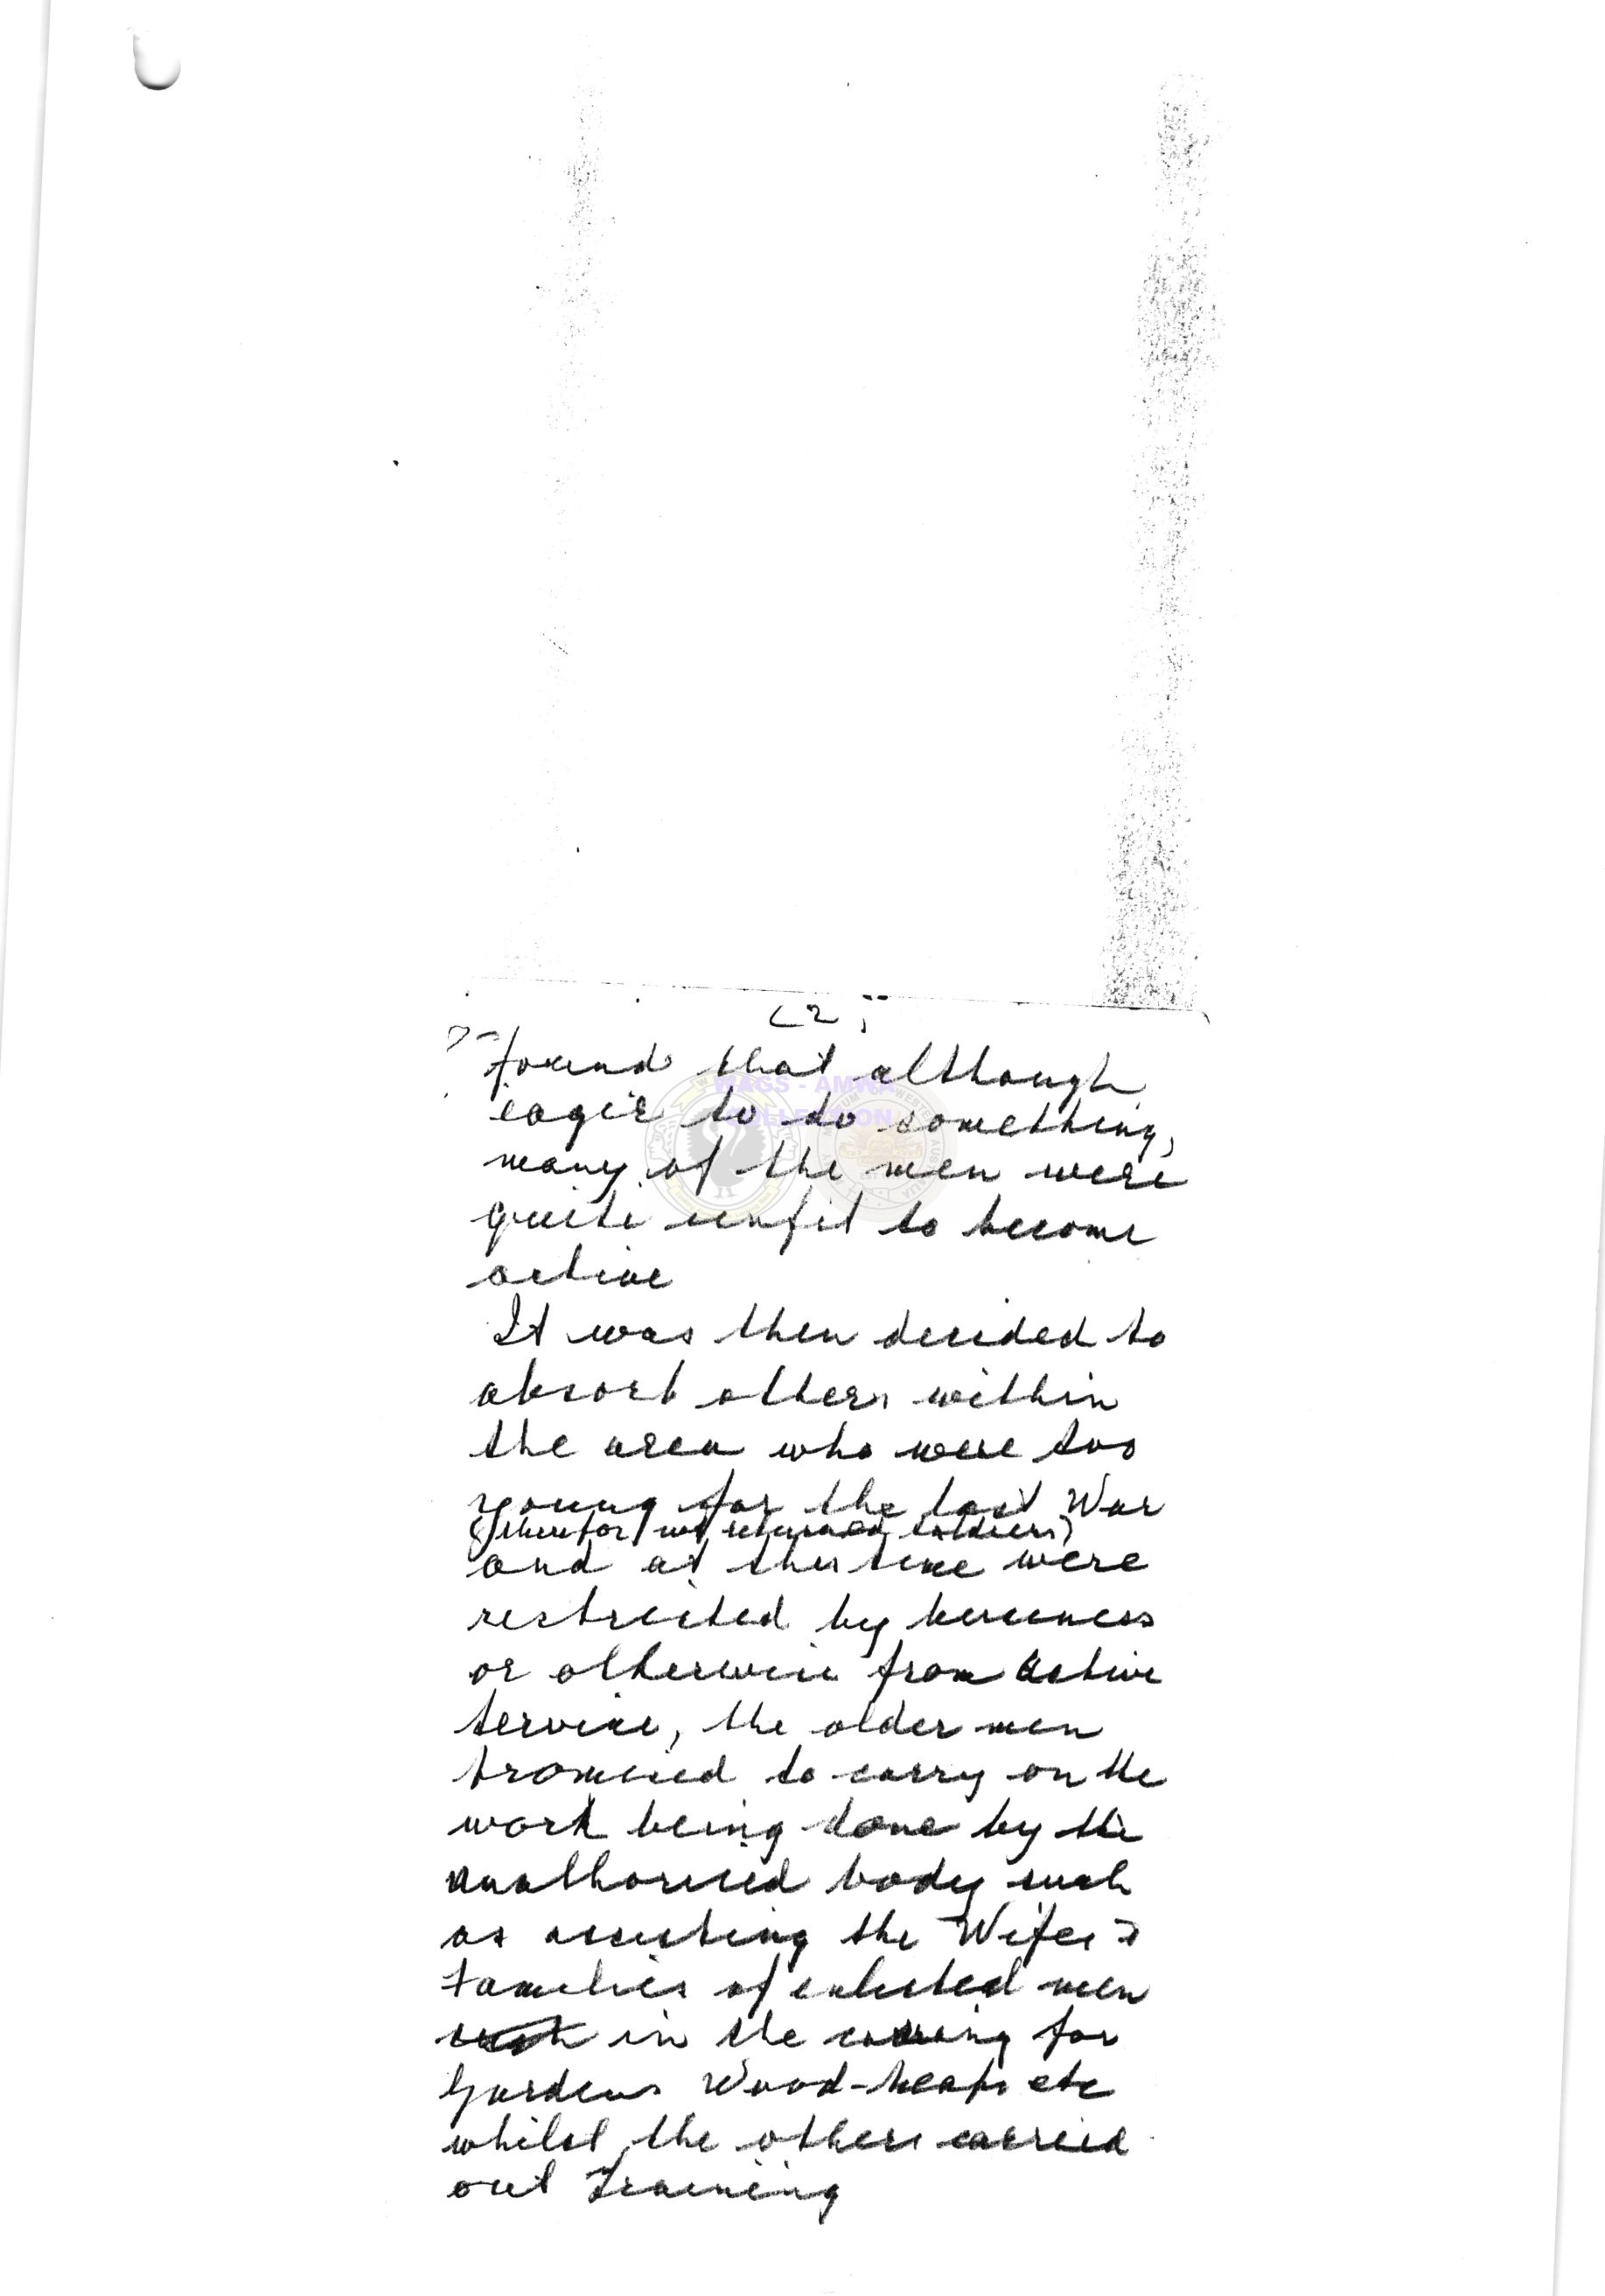 (2)
found that although
WAGS - AMWA
COLLECTION
eager to do something,
many of the men were
quite unfit to become
active
It was then decided to
absorb others within
the area who were too
young for the last War
(therefor not returned soldiers)
and at this time were
restricted by business
or otherwise from active
service, the older men
promised to carry on the
work being done by the
unathorised body such
as assisting the Wifes &
families of enlisted men
such in the caring for
Gardens Wood-heaps etc
whilst the others carried
out Training